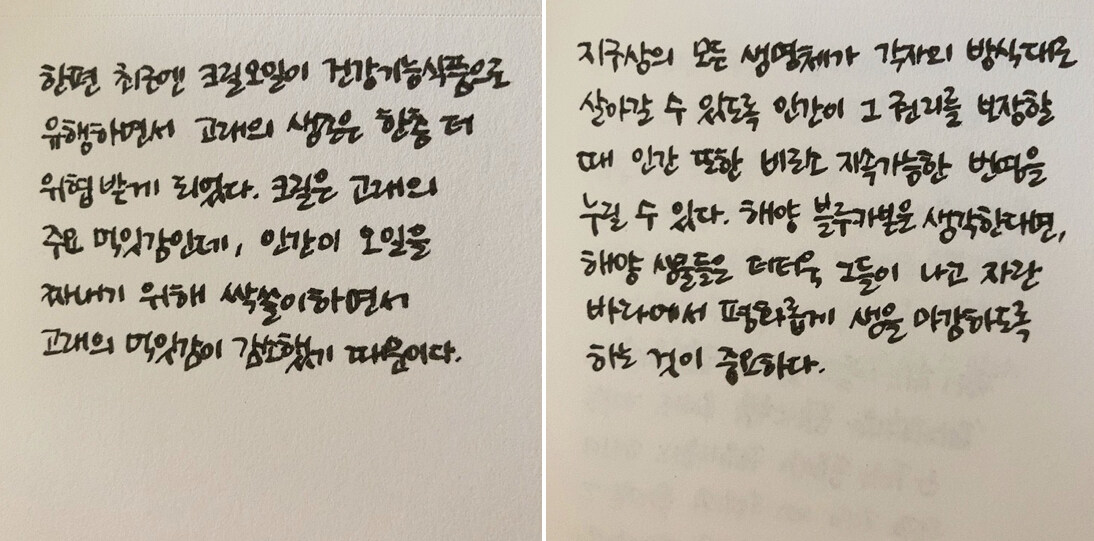 한편 최근엔 크릴오일이 건강기능식품으로
유행하면서 고래의 생존은 한층 더
위협받게 되었다. 크릴은 고래의
주요 먹잇감인데, 인간이 오일을
짜내기 위해 싹쓸이하면서
고래의 먹잇감이 감소했기 때문이다.
지구상의 모든 생명체가 각자의 방식대로
살아갈 수 있도록 인간이 그 권리를 보장할
때 인간 또한 비로소 지속가능한 번영을
누릴 수 있다. 해양 블루카본을 생각한다면,
해양 생물들은 더더욱 그들이 나고 자란
바다에서 평화롭게 생을 마감하도록
하는 것이 중요하다.